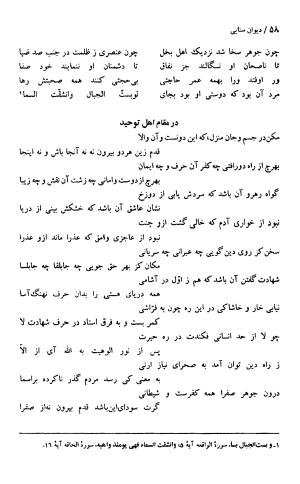 ۵۸ / دیوان سنایی
چون جوهر سخا شد نزدیک اهل بخل
چون عنصری ز ظلمت در جنب صد ضیا
تا ناصحان او نسگالند جز نفاق
تا دشمنان او ننمایند خود صفا
ور اوفتد ورا بهمه عمر حاجتی
بی‌حجتی کنند همه صحبتش رها
مرد آن بود که دوستی او بود بجای
لوبست الجبال وانشقت السما¹
در مقام اهل توحید
مکن در جسم و جان منزل، که این دونست و آن والا
قدم زین هر دو بیرون نه نه آنجا باش و نه اینجا
بهرچ از راه دور افتی چه کفر آن حرف و چه ایمان
بهرچ از دوست وامانی چه زشت آن نقش و چه زیبا
گواه رهرو آن باشد که سردش یابی از دوزخ
نشان عاشق آن باشد که خشکش بینی از دریا
نبود از خواری آدم که خالی گشت ازو جنت
نبود از عاجزی وامق که عذرا ماند ازو عذرا
سخن کز روی دین گویی چه عبرانی چه سریانی
مکان کز بهر حق جویی چه جابلقا چه جابلسا
شهادت گفتن آن باشد که هم ز اول در آشامی
همه دریای هستی را بدان حرف نهنگ‌آسا
نیابی خار و خاشاکی در این ره چون به فراشی
کمر بست و به فرق استاد در حرف شهادت لا
چو لا از حد انسانی فکندت در ره حیرت
پس از نور الوهیت به الله آی از الا
ز راه دین توان آمد به صحرای نیاز ارنی
به معنی کی رسد مردم گذر ناکرده بر اسما
درون جوهر صفرا همه کفرست و شیطانی
گرت سودای این باشد قدم بیرون نه از صفرا
۱ـ و بست‌الجبال بسا، سورة الواقعه آیهٔ ۵؛ وانشقت السماء فهی یومئذ واهیه، سورهٔ الحاقه آیهٔ ۱۶.